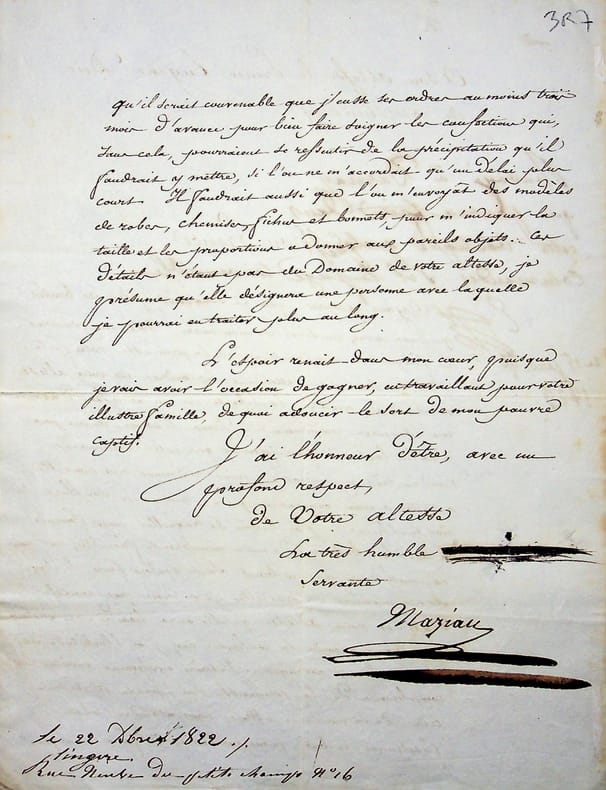 3R7
qu'il serait convenable que j'eusse ses ordres au moins trois
mois d'avance pour bien faire soigner les confections qui,
sans cela, pourraient se ressentir de la précipitation qu'il
faudrait y mettre, si l'on ne m'accordait qu'un délai plus
court. Il faudrait aussi que l'on m'envoyat des modèles
de robes, chemises, fichus et bonnets, pour m'indiquer la
taille et les proportions a donner aux pareils objets. Ces
détails n'étant pas du Domaine de votre altesse, je
présume qu'elle désignera une personne avec la quelle
je pourrai en traiter plus au long.
L'espoir renait dans mon cœur, puisque
je vais avoir l'occasion de gagner, en travaillant pour votre
illustre famille, de quoi adoucir le sort de mon pauvre
captif.
J'ai l'honneur d'être, avec un
profond respect,
de Votre altesse
La très humble
Servante
Maziau
le 22 Xbre 1822
Lingère
Rue Neuve des petits champs N° 16